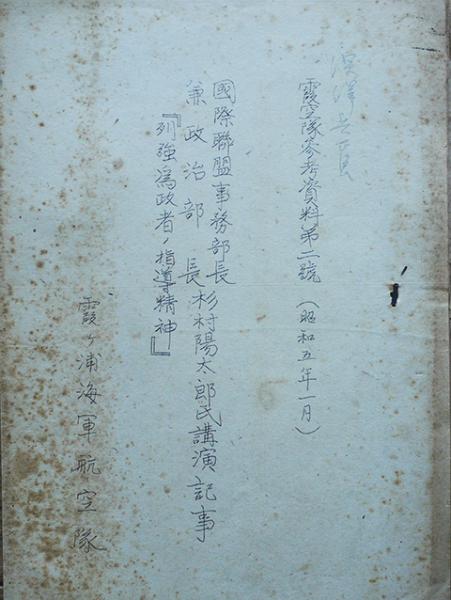 霞空隊参考資料第二號（昭和五年一月）
國際聯盟事務部長
兼政治部長
杉村陽太郎氏講演記事
『列強為政者ノ指導精神』
霞ヶ浦海軍航空隊